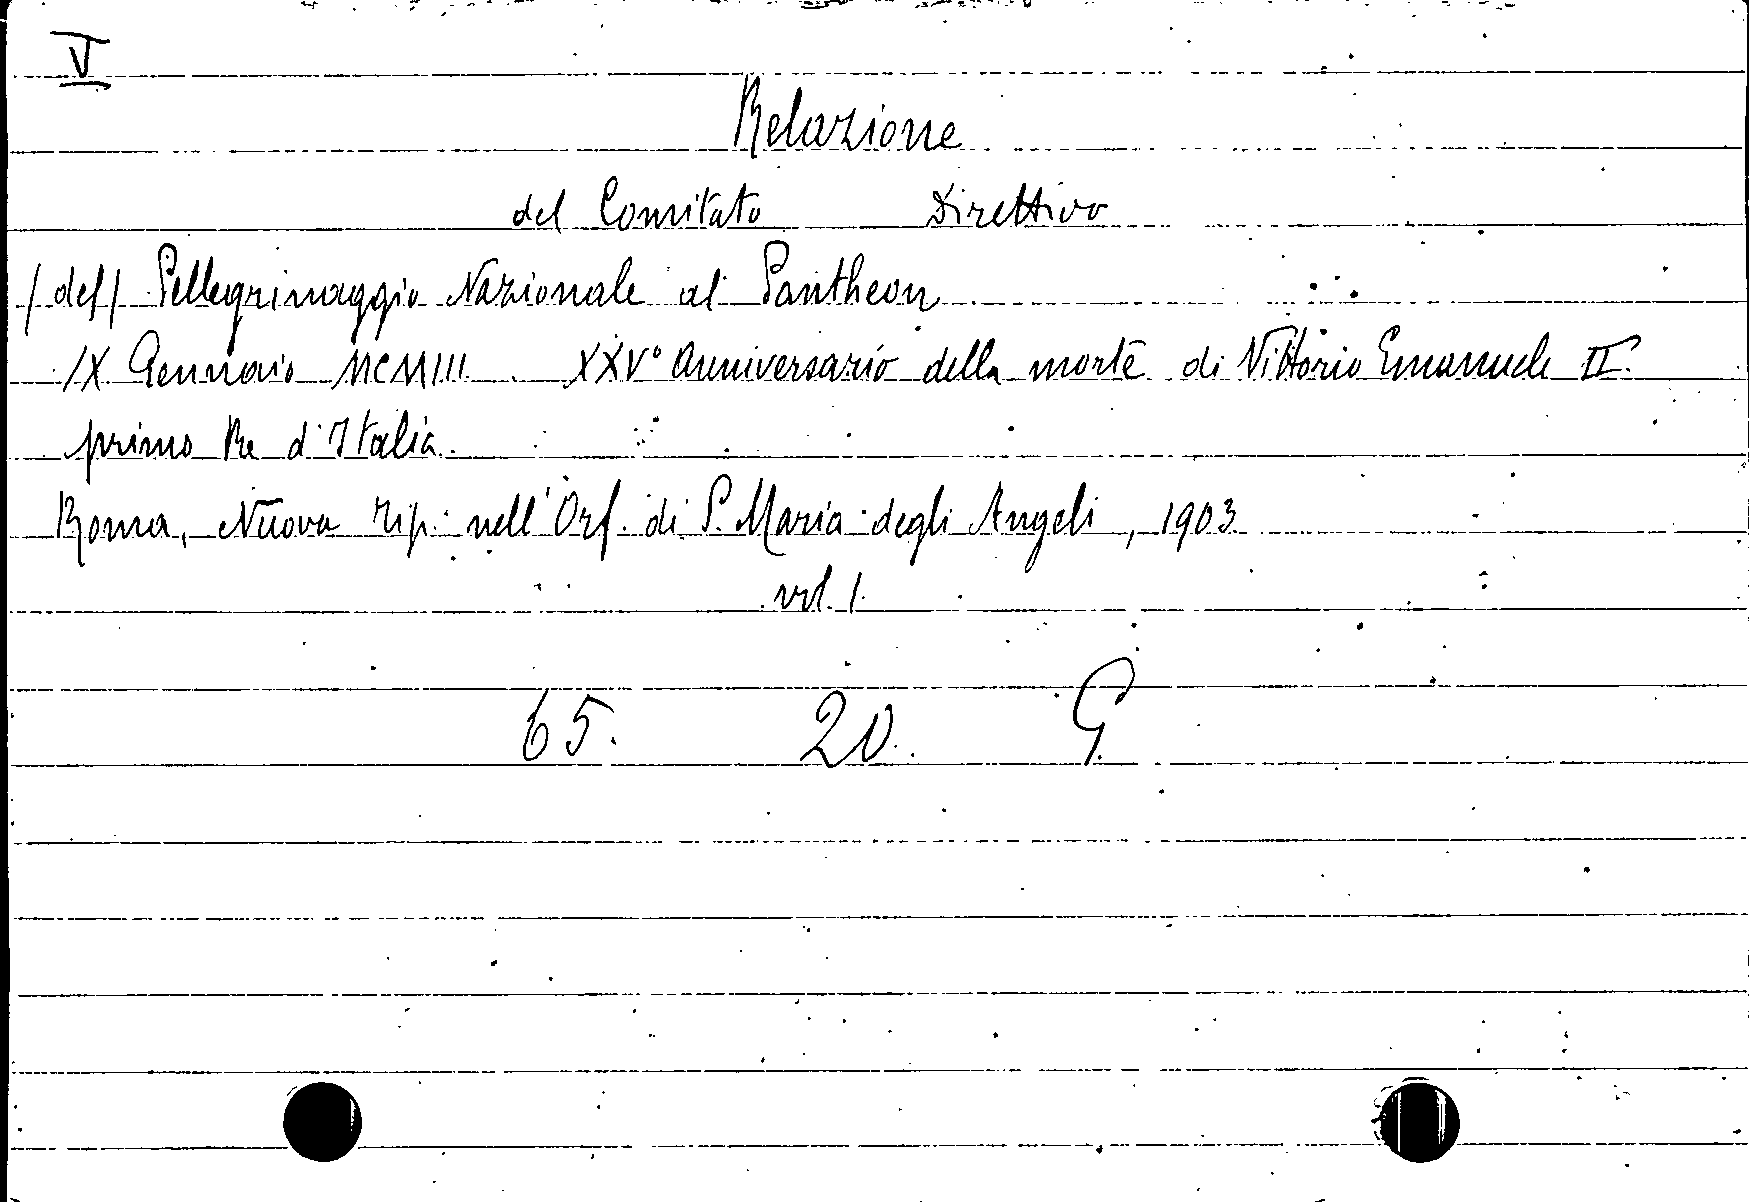 V
Relazione
del Comitato Direttivo
/del/ Pellegrinaggio Nazionale al Pantheon
IX Gennaio MCMIII XXV° anniversario della morte di Vittorio Emanuele II
primo Re d'Italia.
Roma, Nuova tip. nell'Orf. di S. Maria degli Angeli, 1903
vol. 1.
65. 20. G.